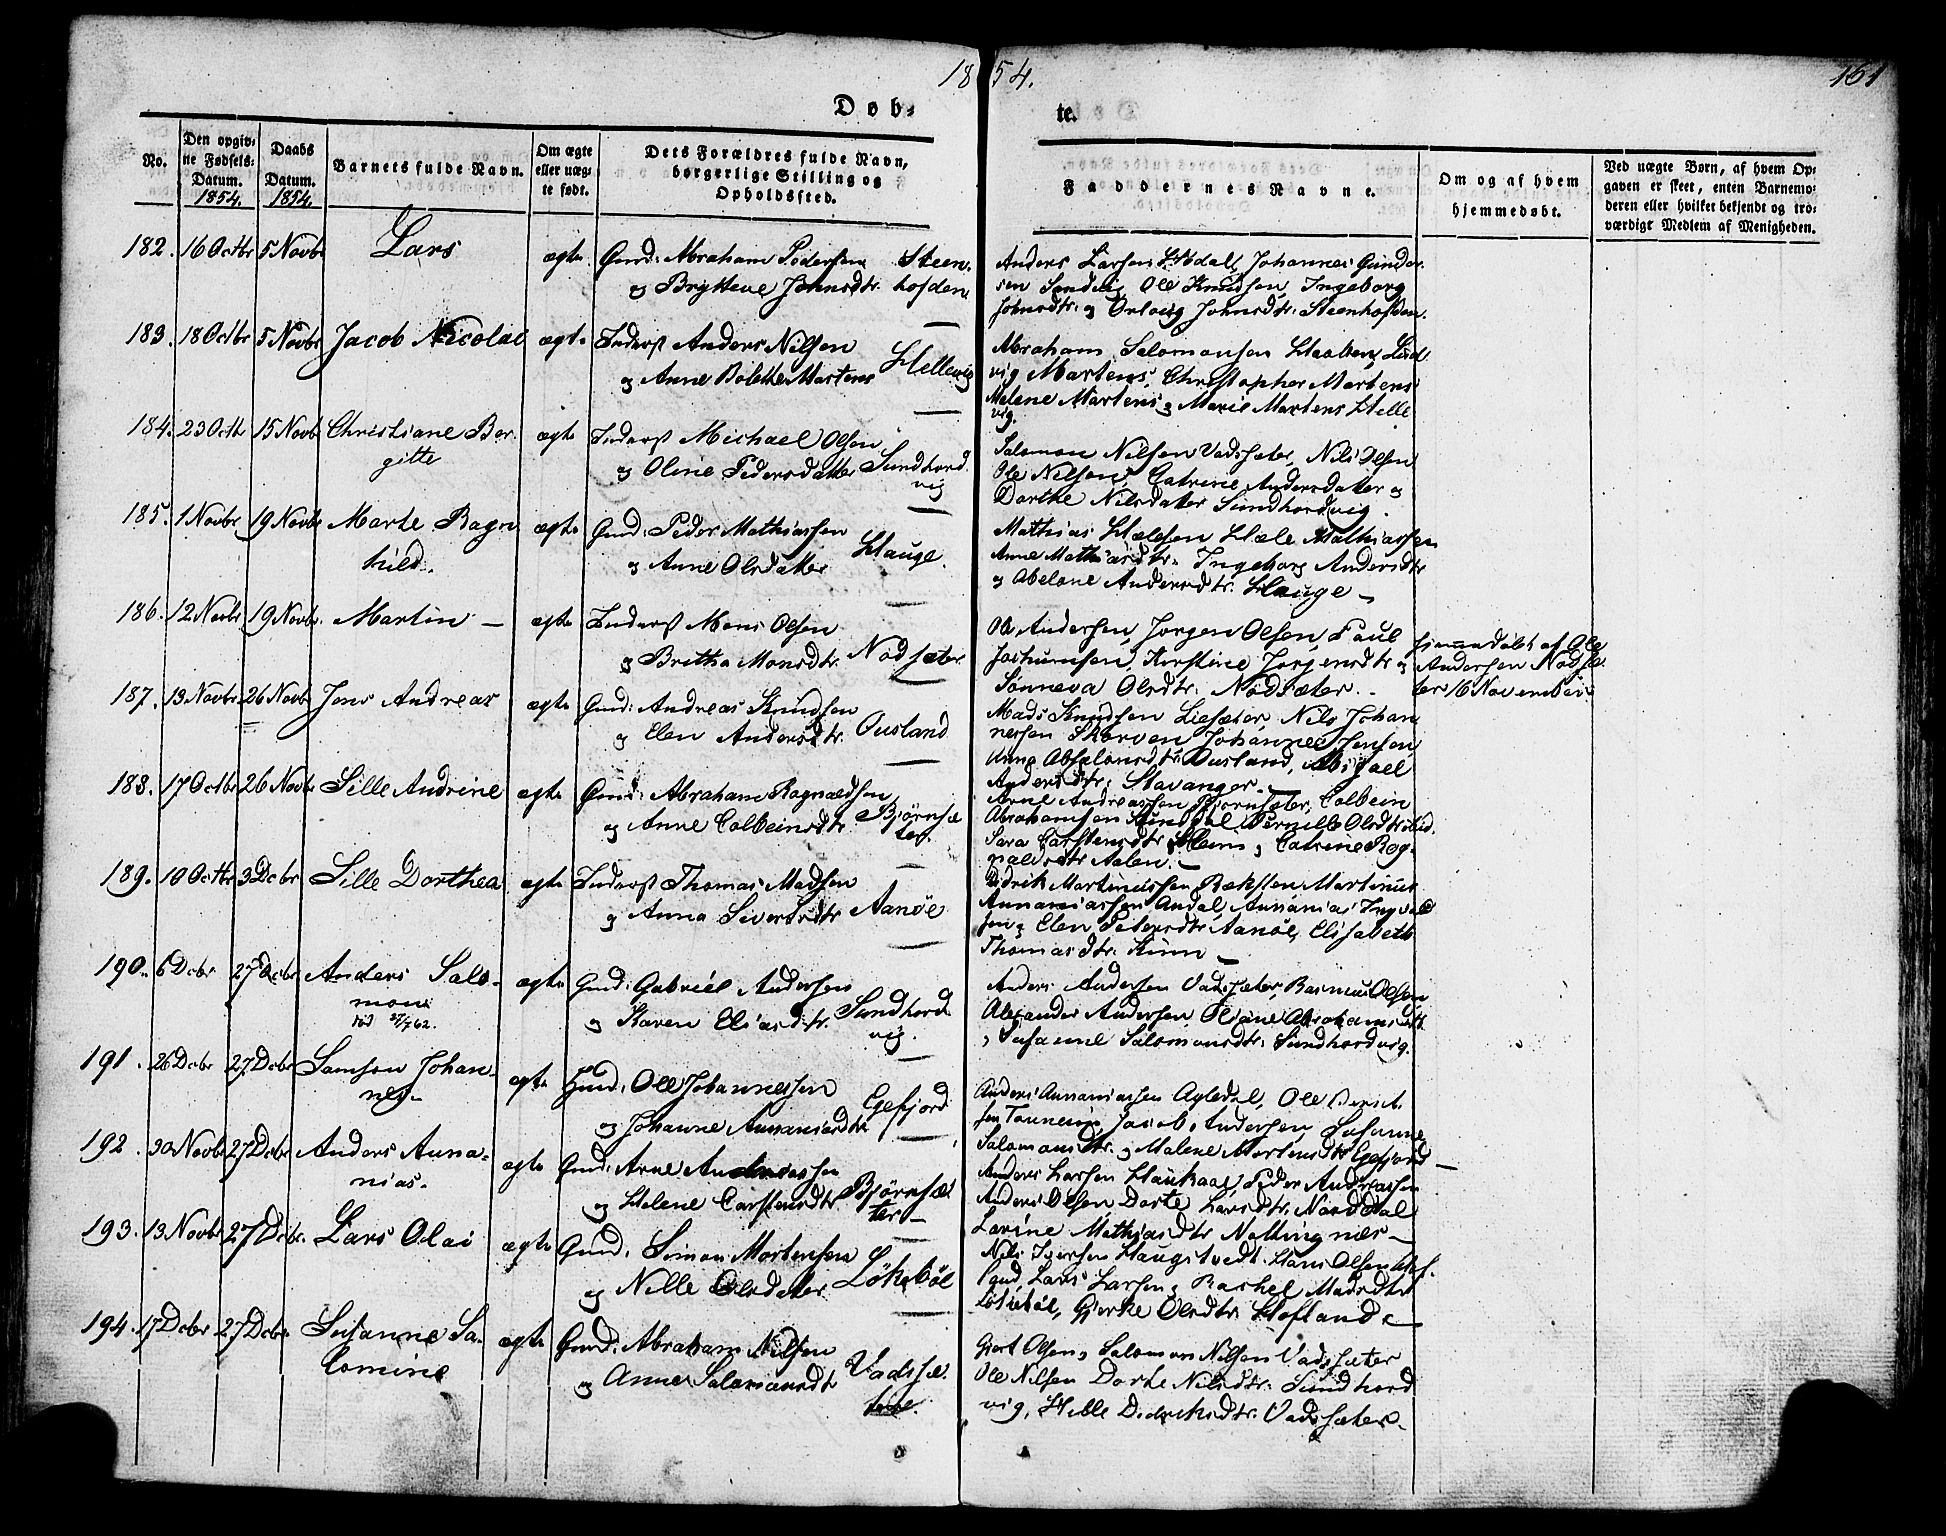 1854.
161
Døbte.
No.
Den opgivne Fødsels-Datum. 1854.
Daabs Datum. 1854.
Barnets fulde Navn.
Om ægte eller uægte født.
Dets Forældres fulde Navn, borgerlige Stilling og Opholdssted.
Faddernes Navne.
Om og af hvem hjemmedøbt.
Ved uægte Børn, af hvem Opgaven er skeet, enten Barnemoderen eller hvilket bekjendt og troværdigt Medlem af Menigheden.
182. 16 Octbr 5 Novbr Lars ægte Gmd: Abraham Pedersen Steen-
og Brytteve Johnsdtr. hofden
Anders Larsen Hødal, Johannes Gunder-
sen Sandvig Ole Knudsen, Ingeborg
Johnsdtr. og Orlovig Johnsdtr. Steenhofden.
183. 18 Octbr 5 Novbr Jacob Nicolai ægte Inderst Anders Nilsen
og Anne Bolethe Martens Hellevig
Abraham Salomonsen Haalten, Lud-
vig Martens, Christopher Martens
Malene Martens og Marie Martens Helle
vig.
184. 23 Octbr 15 Novb Christiane Ber-
gitte
ægte Inderst Michael Olsen
og Oline Pedersdatter Sundhord
vig
Salomon Nilsen Vadsæter, Nils Olsen
Ole Nilsen, Catrine Andersdater og
Dorthe Nilsdater Sundhordvig.
185. 1 Novbr 19 Novbr Marte Ragn
hild.
ægte Gmd: Peder Mathiassen
og Anne Olsdatter Hauge.
Mathias Hælesen Hæle Mathiassen
Anne Mathiasdtr. Ingeborg Andersdtr
og Abelone Andersdtr. Hauge
186. 12 Novbr 19 Novbr. Martin ægte Inderst Mons Olsen
og Britha Monsdtr. Nodsæter
Ole Andersen, Jørgen Olsen, Paul
Jochumsen, Kirstine Jørgensdtr og
Sønneva Olsdtr. Nodsæter.
hjemmedøbt af Ole
Andersen Nodsæ-
ter 16 November
187. 13 Novbr 26 Novbr Jens Andreas ægte Gmd: Andreas Knudsen
og Elen Andersdtr. Ousland
Mads Knudsen Liesæter, Nils Johan
nessen Skorven Johannes Jensen
Anna Absalonsdtr. Ousland, Abigael
Andersdtr. Stavanger.
188. 17 Octbr 26 Novbr Sille Andrine ægte Gmd: Abraham Ragnaldsen
og Anne Colbeinsdtr. Bjørnsæ
ter.
Arne Andreassen Bjørnsæter, Colbein
Abrahamsen Pernille Olsdtr
Sara Carstensdtr. og Catrine Rag-
naldsdtr Aalen.
189. 10 Octbr 3 Dcbr Sille Dorthea ægte Inderst Thomas Madsen
og Anna Sivertsdtr Aanøe
Didrik Martinussen Ræksten Martinus
Annaniassen Andal, Annanias Ingvald
sen, Elen Petersdtr Aanøe, Elisabeth
Thomasdtr. Kinn
190. 6 Dcbr 27 Dcbr Anders Salo-
mon
død 27/7 62.
ægte Gmd: Gabriel Andersen
og Karen Eliasdtr. Sundhord
vig.
Anders Andersen Vadsæter, Rasmus Olsen,
Alexander Andersen, Oliane Abrahamsdtr
og Susanne Salomonsdtr. Sundhordvig.
191. 26 Dcbr 27 Dcbr Samson Johan-
nes
ægte Gmd: Ole Johannessen
og Johanne Annaniasdtr Gefjord
Anders Annaniassen Agledal, Ole Derick
sen Tonnevig Jacob Andersen, Susanne
Salomonsdtr. og Malene Mortensdtr Gefjord
192. 30 Novbr 27 Dcbr Anders Anna-
nias.
ægte Gmd: Arne Andreassen
og Helene Carstensdtr Bjørnsæ
ter
Anders Larsen Haukaas, Peder Andreassen
Anders Olsen, Dorte Larsdtr. Norddal
Lavine Mathiasdtr Nottingnæs
193. 13 Novbr 27 Dcbr. Lars Olai ægte Gmd: Simon Mortensen
og Nille Olsdater Løkebøe
Nils Iversen Haugstvedt Hans Olsen Hof-
land, Lars Larsen, Rachel Madsdtr
Løkebøe, Gjerke Olsdtr. Hofland
194. 17 Dcbr 27 Dcbr. Susanne Sa-
lomine
ægte Gmd: Abraham Nilsen
og Anne Salomonsdtr Vadsæ-
ter.
Gjert Olsen, Salomon Nilsen Vadsæter
Ole Nilsen Dorte Nilsdtr. Sundhord
vig, Hille Didriksdtr. Vadsæter.